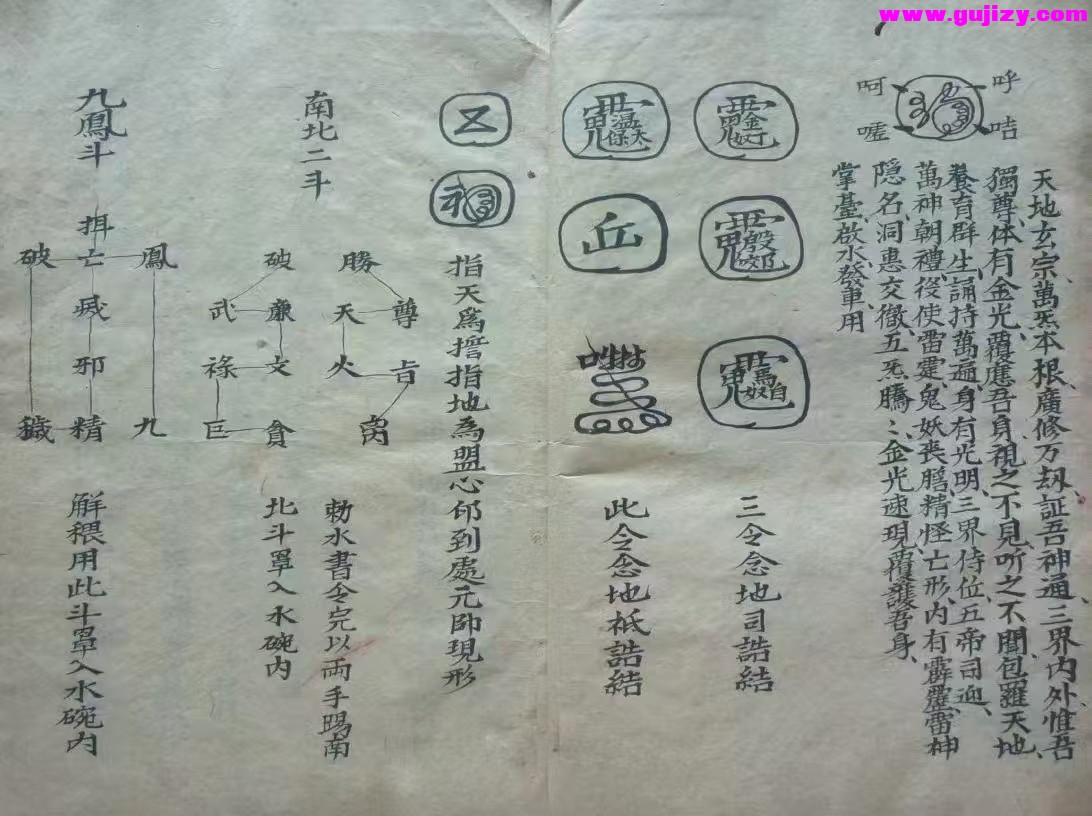 www.gujizy.com
呼
咭
呵
嘘
天地玄宗、萬炁本根、廣修万刼、証吾神通、三界内外、惟吾
獨尊、体有金光、覆應吾身、視之不見、听之不聞、包羅天地、
養育群生、誦持萬遍、身有光明、三界侍位、五帝司迎、
萬神朝禮、役使雷霆、鬼妖丧膽、精怪亡形、内有霹靂、雷神
隐名、洞惠交徹、五炁騰〻、金光速現、覆護吾身、
掌臺啟水發軍用
三令念地司誥結
丘
此令念地祇誥結
指天為擔指地為盟心
到處元帥現形
南北二斗
勝
尊
天
火
破
武
文
祿
巨
貪
勅水書令完以両手
南
北斗罩入水碗内
九鳳斗
鳳
亡
破
邪
九
精
穢
用此斗罩入水碗内